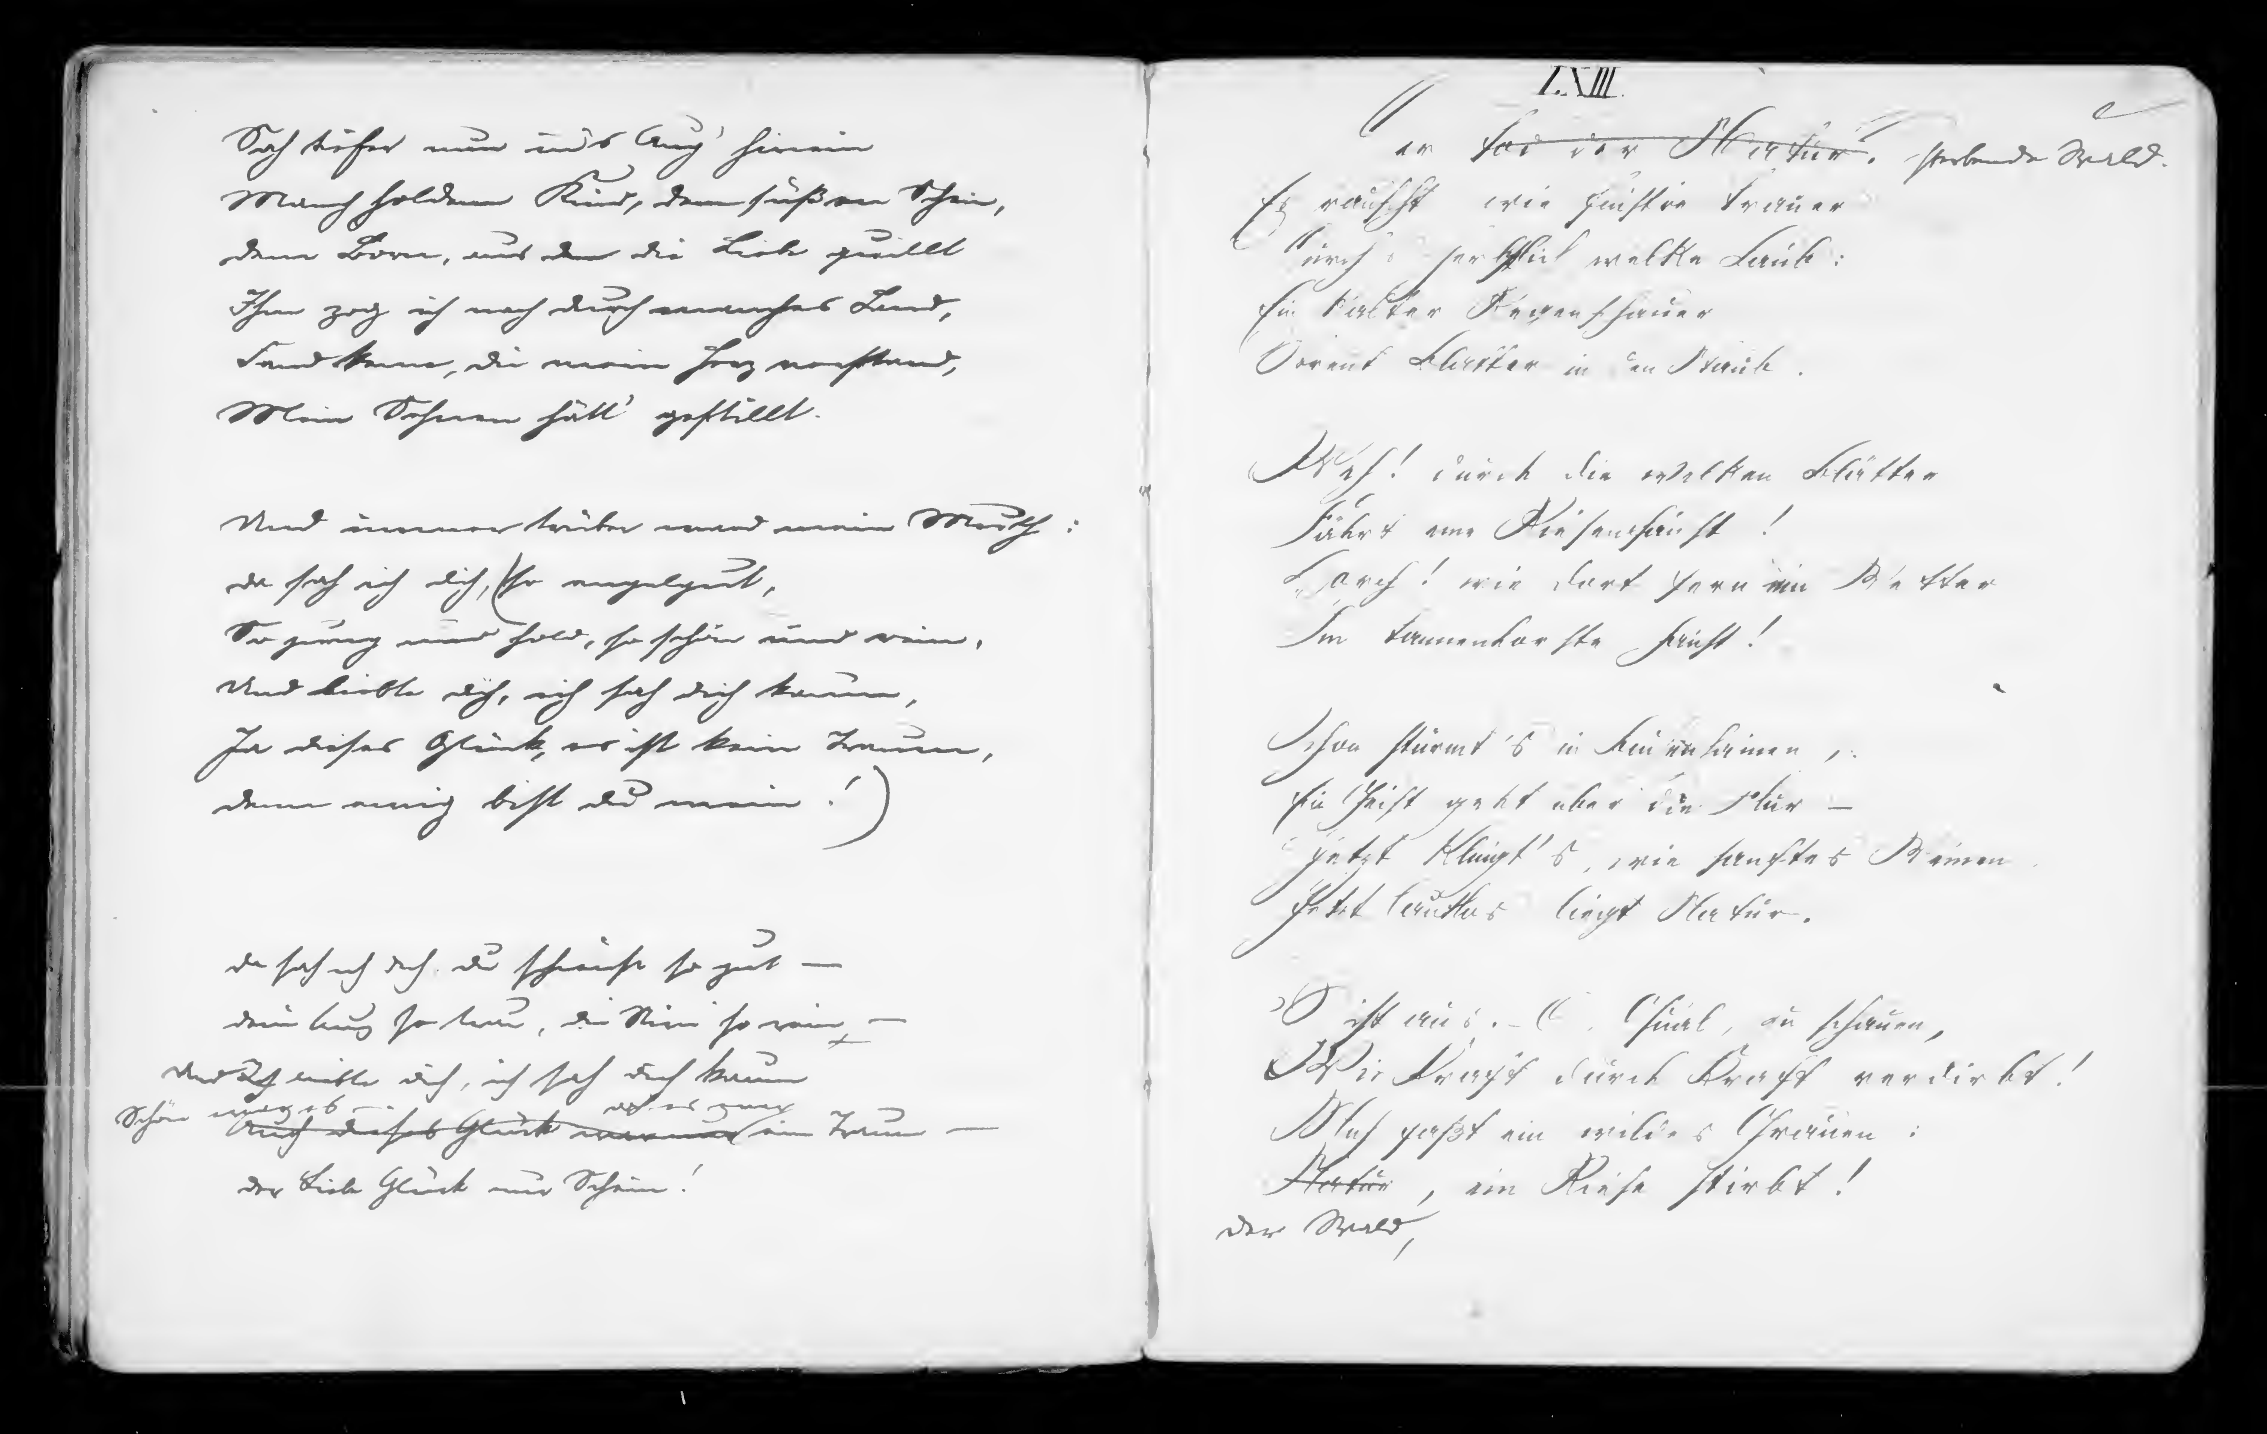 Sah tiefer nun in's Aug' hinein
Manch holdem Kind, dem süßen Schein,
dem Born, aus dem die Liebe quillt
Ihm zog ich nach durch manches Land,
Fand keine, die mein Herz verstand,
Mein Sehnen hätt' gestillt.
Und immer trüber ward mein Muth:
da sah ich dich, (so engelgut,
So jung und hold, so schön und rein,
Und liebte dich, ich sah dich kaum,
Ja dieses Glück, es ist kein Traum,
denn ewig bist du mein!)
da sah ich dich du schienst so gut —
dein Aug so treu, die Stirn so rein, —
Und Ich liebte dich, ich sah dich kaum
Schön mag es
Auch dieses Glück ein Traum —
der Liebe Glück nur Schein!
LXIII.
er Tod der Natur. sterbende Wald.
Es rauscht wie finstre Trauer
Durch's herbstlich welke Laub:
Ein kalter Regenschauer
Streut Blätter in den Staub.
Weh! durch die welken Blätter
Fährt eine Riesenfaust!
Horch! wie dort fern ein Wetter
Im Tannenforste haust!
Schon stürmt's in Buchenhainen,
Ein Geist geht über die Flur —
Jetzt klingt's, wie sanftes Weinen
Jetzt lautlos liegt Natur.
'S ist aus. – O Qual, zu schauen,
Wie Kraft durch Kraft verdirbt!
Mich faßt ein wildes Grauen:
Natur, ein Riese stirbt!
Der Wald,